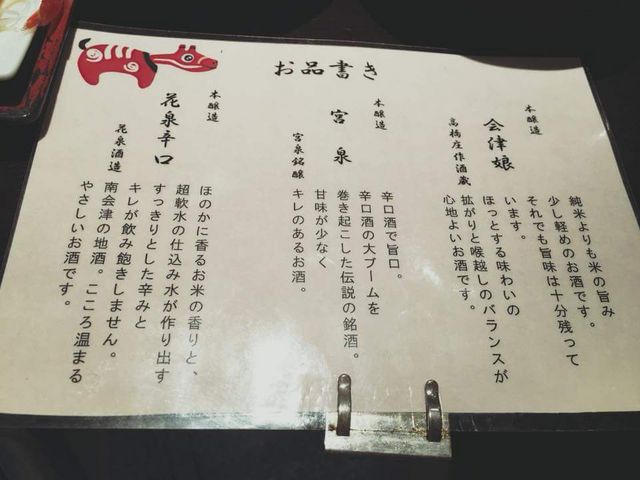 お品書き
本醸造
会津娘
高橋庄作酒蔵
純米よりも米の旨み
少し軽めのお酒です。
それでも旨味は十分残って
います。
ほっとする味わいの
拡がりと喉越しのバランスが
心地よいお酒です。
本醸造
宮泉
宮泉銘醸
辛口酒で旨口。
辛口酒の大ブームを
巻き起こした伝説の銘酒。
甘味が少なく
キレのあるお酒。
本醸造
花泉辛口
花泉酒造
ほのかに香るお米の香りと、
超軟水の仕込み水が作り出す
すっきりとした辛みと
キレが飲み飽きしません。
南会津の地酒。こころ温まる
やさしいお酒です。